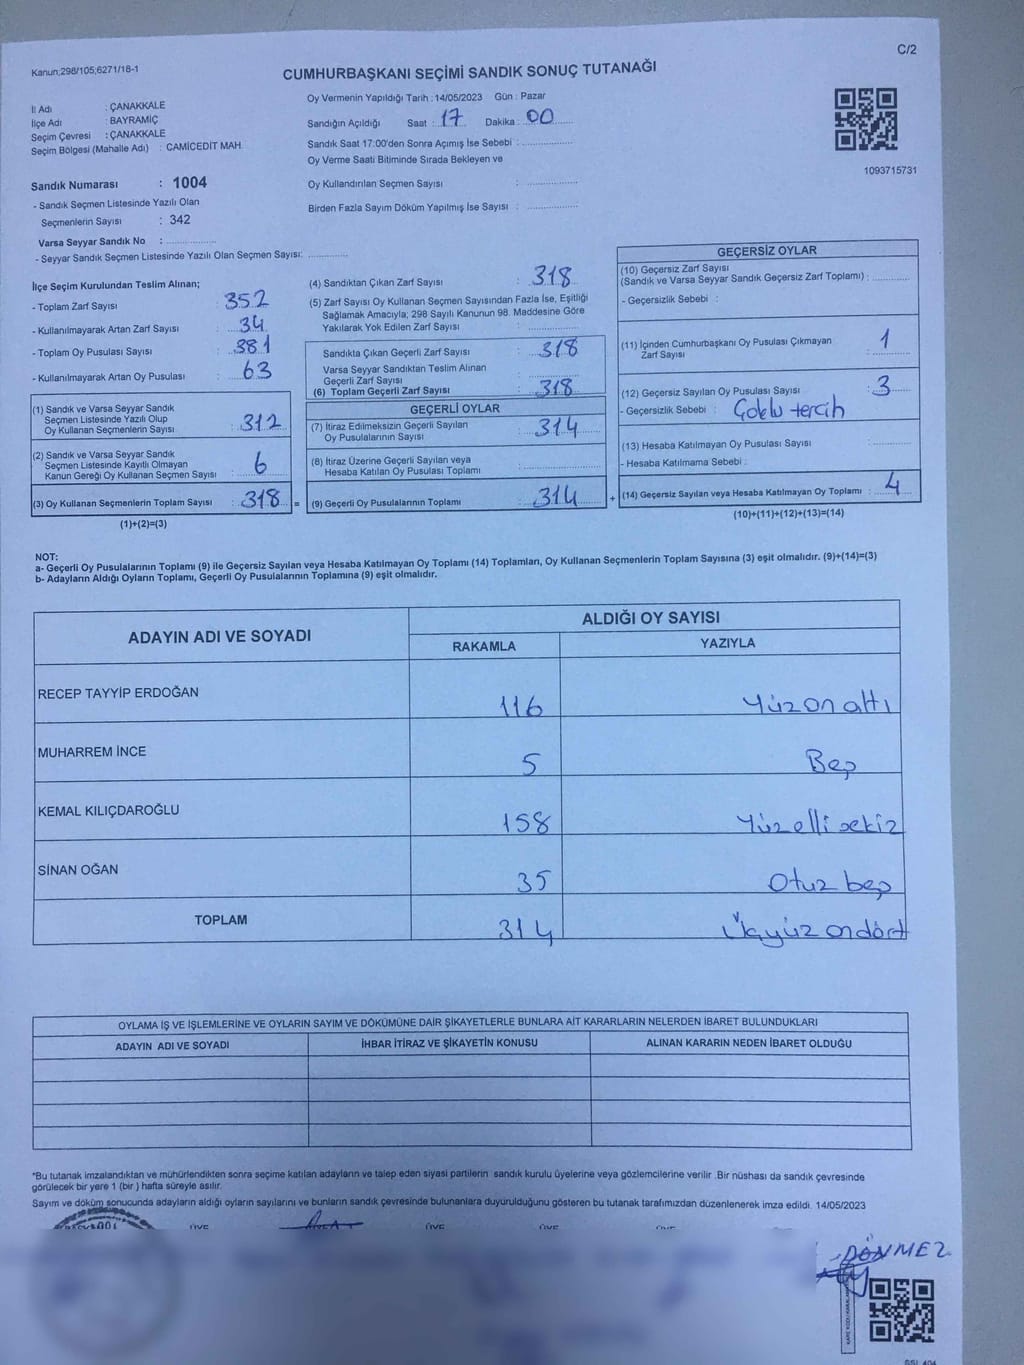 Kanun;298/105;6271/18-1
C/2
CUMHURBAŞKANI SEÇİMİ SANDIK SONUÇ TUTANAĞI
İl Adı : ÇANAKKALE
İlçe Adı : BAYRAMİÇ
Seçim Çevresi : ÇANAKKALE
Seçim Bölgesi (Mahalle Adı) : CAMİCEDİT MAH.
Sandık Numarası : 1004
- Sandık Seçmen Listesinde Yazılı Olan
Seçmenlerin Sayısı : 342
Varsa Seyyar Sandık No :
- Seyyar Sandık Seçmen Listesinde Yazılı Olan Seçmen Sayısı:
Oy Vermenin Yapıldığı Tarih : 14/05/2023 Gün : Pazar
Sandığın Açıldığı Saat : 17 Dakika : 00
Sandık Saat 17:00'den Sonra Açımış İse Sebebi :
Oy Verme Saati Bitiminde Sırada Bekleyen ve
Oy Kullandırılan Seçmen Sayısı :
Birden Fazla Sayım Döküm Yapılmış İse Sayısı :
1093715731
İlçe Seçim Kurulundan Teslim Alınan;
- Toplam Zarf Sayısı : 352
- Kullanılmayarak Artan Zarf Sayısı : 34
- Toplam Oy Pusulası Sayısı : 381
- Kullanılmayarak Artan Oy Pusulası : 63
(1) Sandık ve Varsa Seyyar Sandık
Seçmen Listesinde Yazılı Olup
Oy Kullanan Seçmenlerin Sayısı : 312
(2) Sandık ve Varsa Seyyar Sandık
Seçmen Listesinde Kayıtlı Olmayan
Kanun Gereği Oy Kullanan Seçmen Sayısı : 6
(3) Oy Kullanan Seçmenlerin Toplam Sayısı : 318 =
(1)+(2)=(3)
(4) Sandıktan Çıkan Zarf Sayısı : 318
(5) Zarf Sayısı Oy Kullanan Seçmen Sayısından Fazla İse, Eşitliği
Sağlamak Amacıyla; 298 Sayılı Kanunun 98. Maddesine Göre
Yakılarak Yok Edilen Zarf Sayısı :
Sandıkta Çıkan Geçerli Zarf Sayısı : 318
Varsa Seyyar Sandıktan Teslim Alınan
Geçerli Zarf Sayısı :
(6) Toplam Geçerli Zarf Sayısı : 318
GEÇERLİ OYLAR
(7) İtiraz Edilmeksizin Geçerli Sayılan
Oy Pusulalarının Sayısı : 314
(8) İtiraz Üzerine Geçerli Sayılan veya
Hesaba Katılan Oy Pusulası Toplamı :
(9) Geçerli Oy Pusulalarının Toplamı : 314 +
GEÇERSİZ OYLAR
(10) Geçersiz Zarf Sayısı
(Sandık ve Varsa Seyyar Sandık Geçersiz Zarf Toplamı) :
- Geçersizlik Sebebi :
(11) İçinden Cumhurbaşkanı Oy Pusulası Çıkmayan
Zarf Sayısı : 1
(12) Geçersiz Sayılan Oy Pusulası Sayısı : 3
- Geçersizlik Sebebi : Çoklu tercih
(13) Hesaba Katılmayan Oy Pusulası Sayısı :
- Hesaba Katılmama Sebebi :
(14) Geçersiz Sayılan veya Hesaba Katılmayan Oy Toplamı : 4
(10)+(11)+(12)+(13)=(14)
NOT:
a- Geçerli Oy Pusulalarının Toplamı (9) ile Geçersiz Sayılan veya Hesaba Katılmayan Oy Toplamı (14) Toplamları, Oy Kullanan Seçmenlerin Toplam Sayısına (3) eşit olmalıdır. (9)+(14)=(3)
b- Adayların Aldığı Oyların Toplamı, Geçerli Oy Pusulalarının Toplamına (9) eşit olmalıdır.
ADAYIN ADI VE SOYADI ALDIĞI OY SAYISI
RAKAMLA YAZIYLA
RECEP TAYYİP ERDOĞAN 116 Yüz on altı
MUHARREM İNCE 5 Beş
KEMAL KILIÇDAROĞLU 158 Yüz elli sekiz
SİNAN OĞAN 35 Otuz beş
TOPLAM 314 Üçyüz ondört
OYLAMA İŞ VE İŞLEMLERİNE VE OYLARIN SAYIM VE DÖKÜMÜNE DAİR ŞİKAYETLERLE BUNLARA AİT KARARLARIN NELERDEN İBARET BULUNDUKLARI
ADAYIN ADI VE SOYADI İHBAR İTİRAZ VE ŞİKAYETİN KONUSU ALINAN KARARIN NEDEN İBARET OLDUĞU
*Bu tutanak imzalandıktan ve mühürlendikten sonra seçime katılan adayların ve talep eden siyasi partilerin sandık kurulu üyelerine veya gözlemcilerine verilir. Bir nüshası da sandık çevresinde
görülecek bir yere 1 (bir ) hafta süreyle asılır.
Sayım ve döküm sonucunda adayların aldığı oyların sayılarını ve bunların sandık çevresinde bulunanlara duyurulduğunu gösteren bu tutanak tarafımızdan düzenlenerek imza edildi. 14/05/2023
ÜYE ÜYE ÜYE
DÖNMEZ